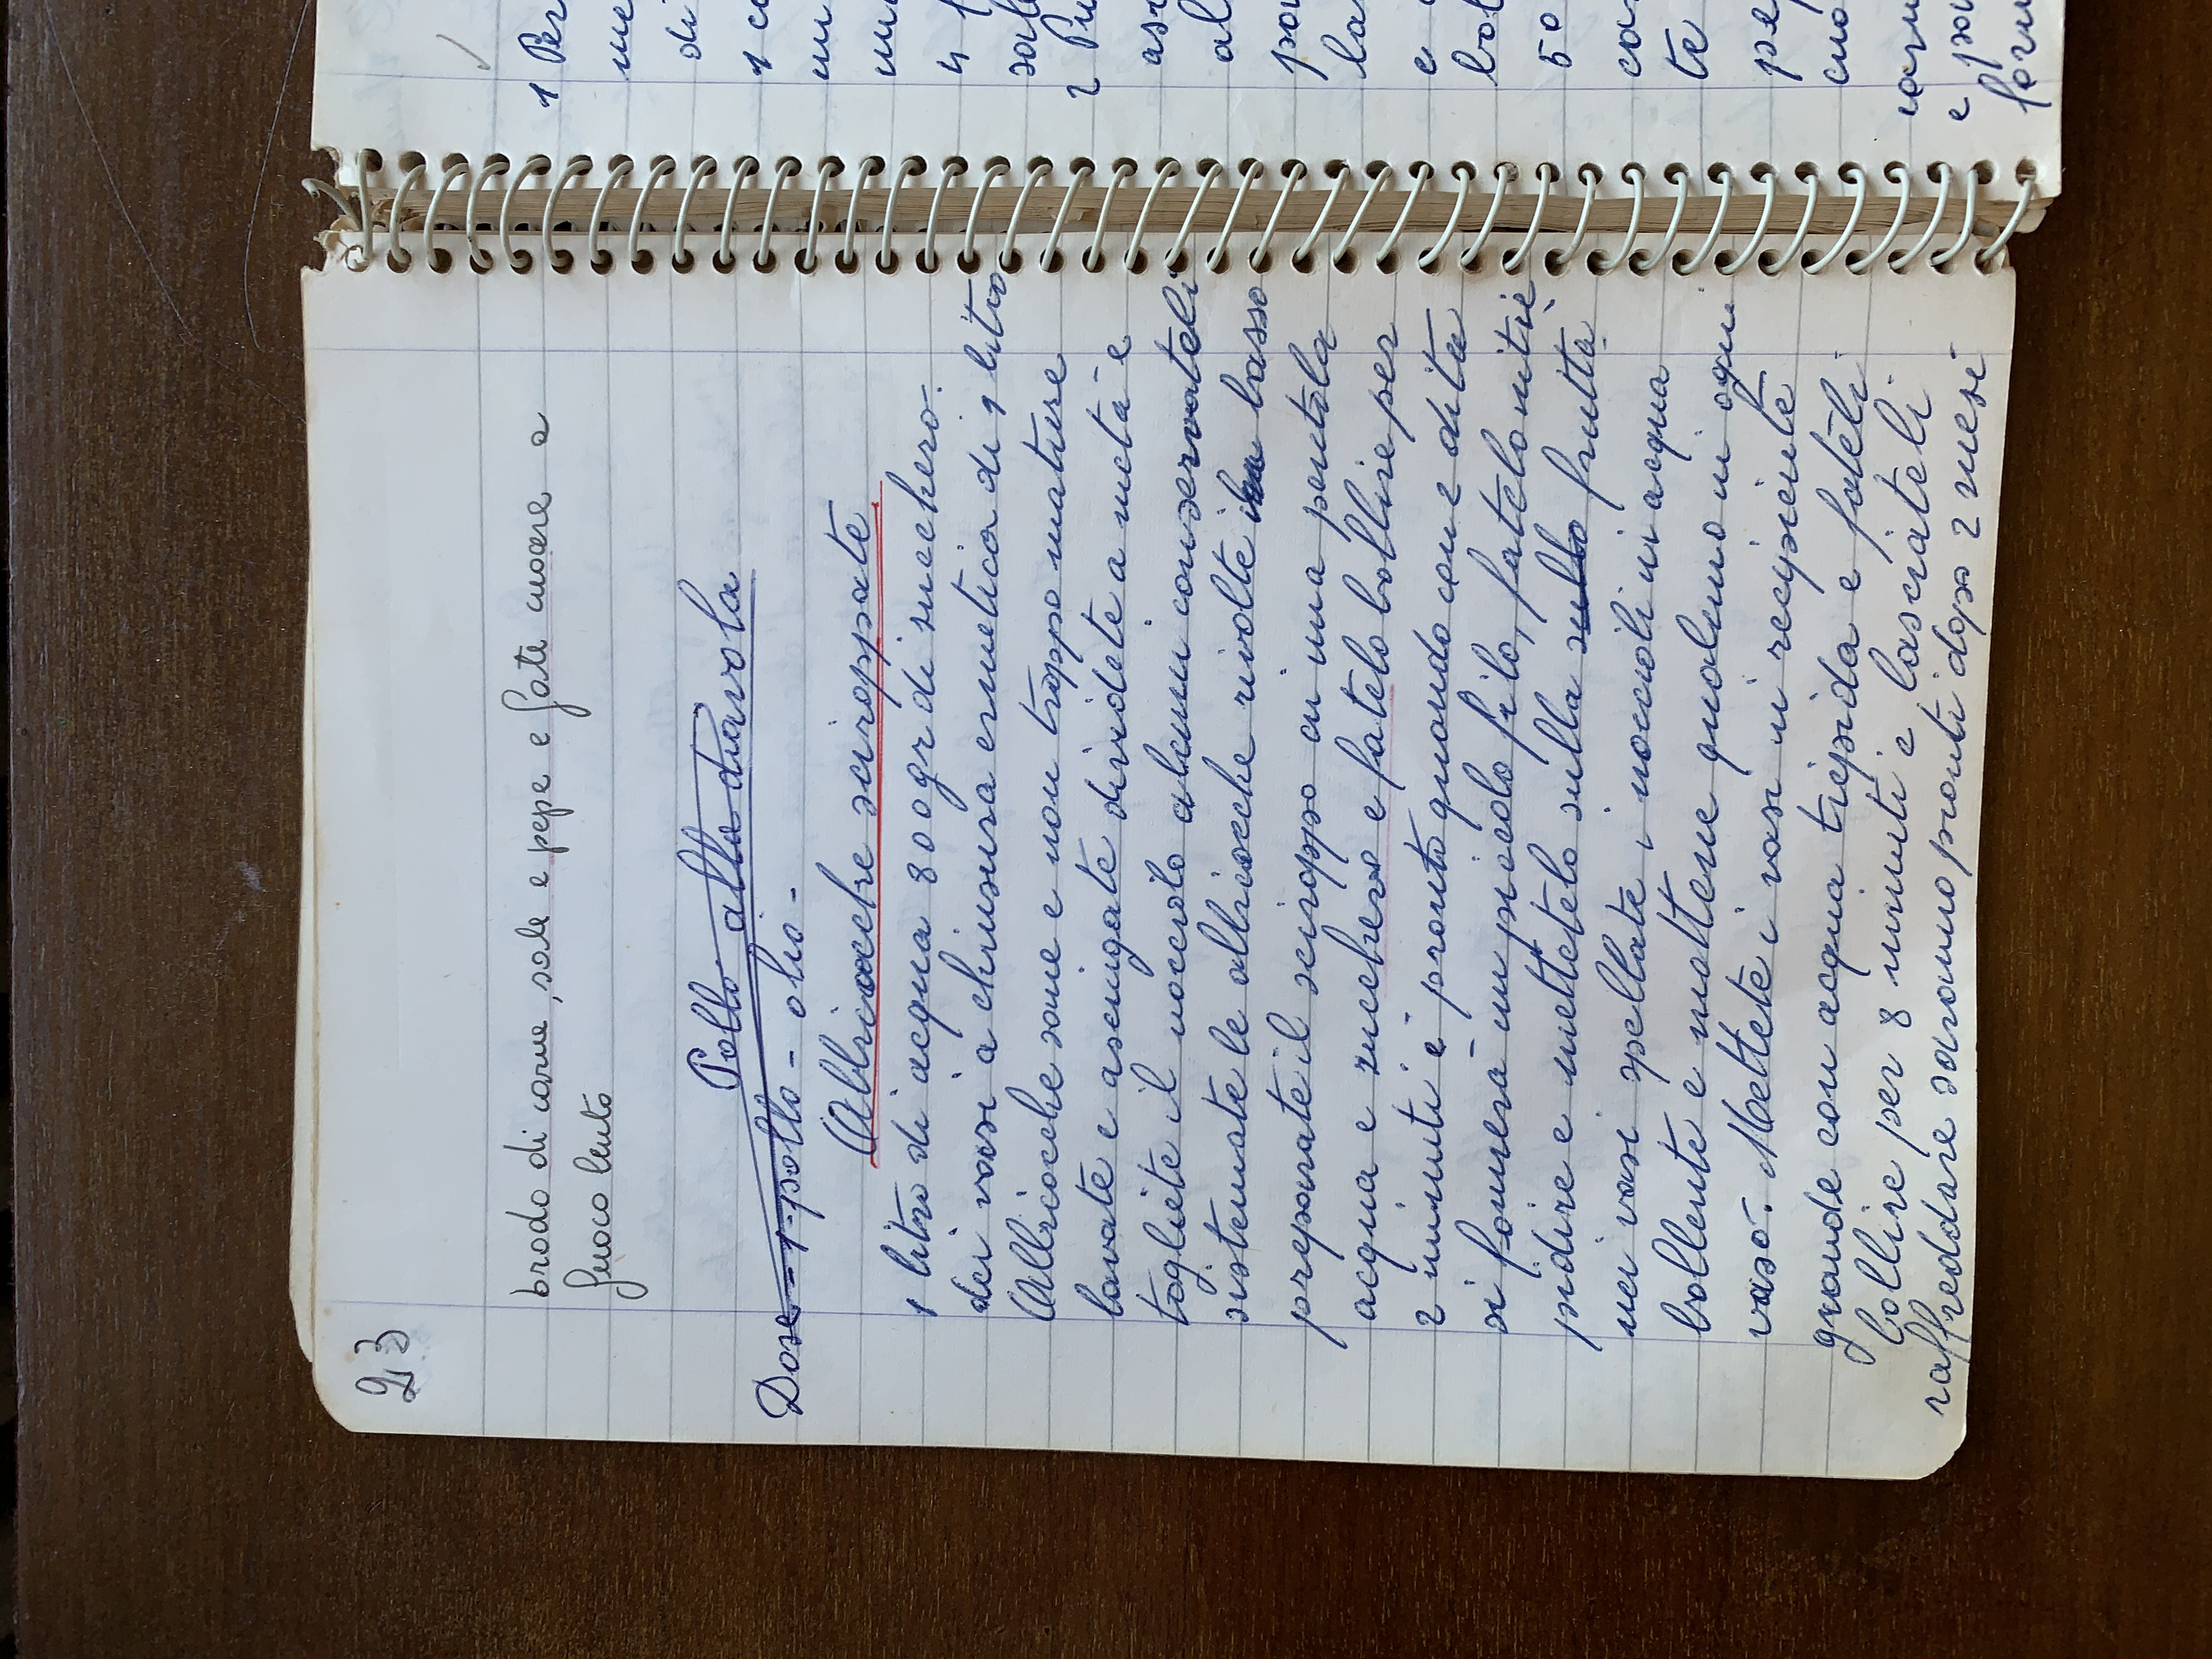 23
brodo di carne, sale e pepe e fate cuocere a
fuoco lento
Pollo alla diavola
Dose - 1 - pollo - olio -
Albicocche sciroppate
1 litro di acqua 800 gr di zucchero.
dei vasi a chiusura ermetica di 1 litro
Albicocche sane e non troppo mature
lavate e asciugate dividete a metà e
togliete il nocciolo alcuni conservateli
sistemate le albicocche rivolte in basso
preparate il sciroppo in una pentola
acqua e zucchero e fatelo bollire per
2 minuti è pronto quando con 2 dita
si formerà un piccolo filo, fatelo intie
pidire e mettetelo sulla sullo frutta
nei vasi spellate i noccioli in acqua
bollente e mettene qualcuno in ogni
vaso. Mettete i vasi in recipiente
grande con acqua tiepida e fateli
bollire per 8 minuti e lasciateli
raffreddare saranno pronti dopo 2 mesi
1 Per
me
di
1 co
un
4
sale
2 Pu
asc
al
la
e
bol
50
te
pep
cuo
e
form